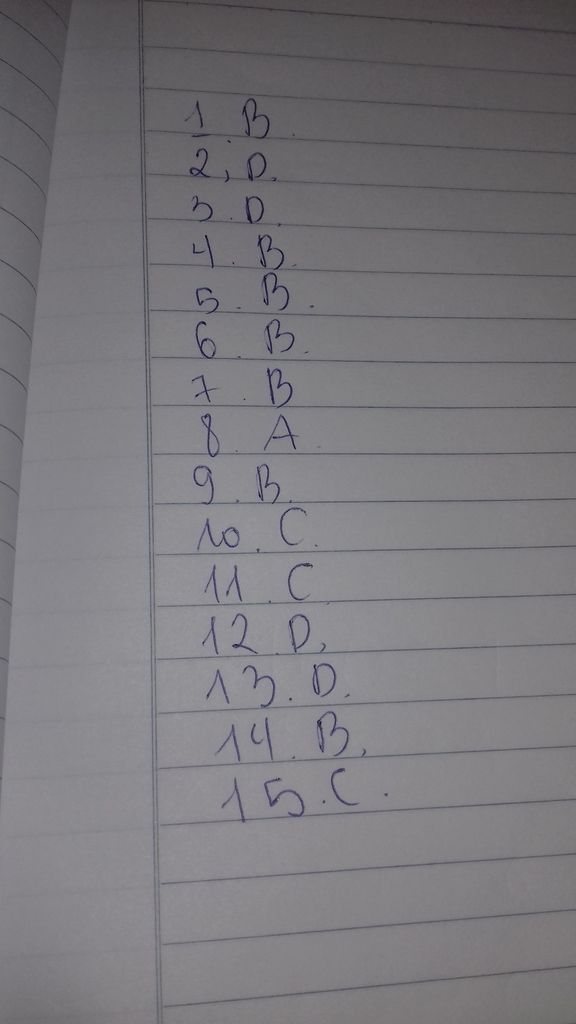 1. B.
2, D.
3. D.
4. B.
5. B.
6. B.
7. B
8. A.
9. B.
10. C.
11. C
12. D,
13. D.
14. B,
15. C.